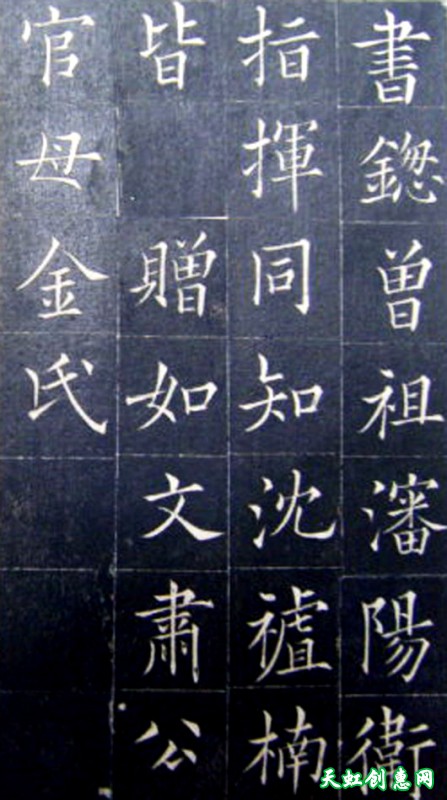 書鍯曾祖瀋陽衛
指揮同知沈楠
皆 贈如文肅公
官母金氏
天虹创意网